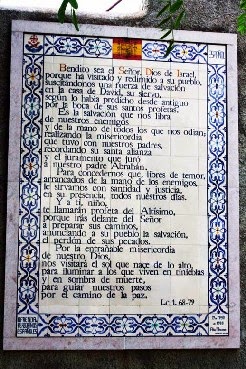 Bendito sea el Señor, Dios de Israel,
porque ha visitado y redimido a su pueblo,
suscitándonos una fuerza de salvación
en la casa de David, su siervo,
según lo había predicho desde antiguo
por la boca de sus santos profetas.
Es la salvación que nos libra
de nuestros enemigos
y de la mano de todos los que nos odian;
realizando la misericordia
que tuvo con nuestros padres,
recordando su santa alianza
y el juramento que juró
a nuestro padre Abrahán.
Para concedernos que, libres de temor,
arrancados de la mano de los enemigos,
le sirvamos con santidad y justicia,
en su presencia, todos nuestros días.
Y a ti, niño,
te llamarán profeta del Altísimo,
porque irás delante del Señor
a preparar sus caminos,
anunciando a su pueblo la salvación,
el perdón de sus pecados.
Por la entrañable misericordia
de nuestro Dios,
nos visitará el sol que nace de lo alto,
para iluminar a los que viven en tinieblas
y en sombra de muerte,
para guiar nuestros pasos
por el camino de la paz.
Lc. 1, 68-79